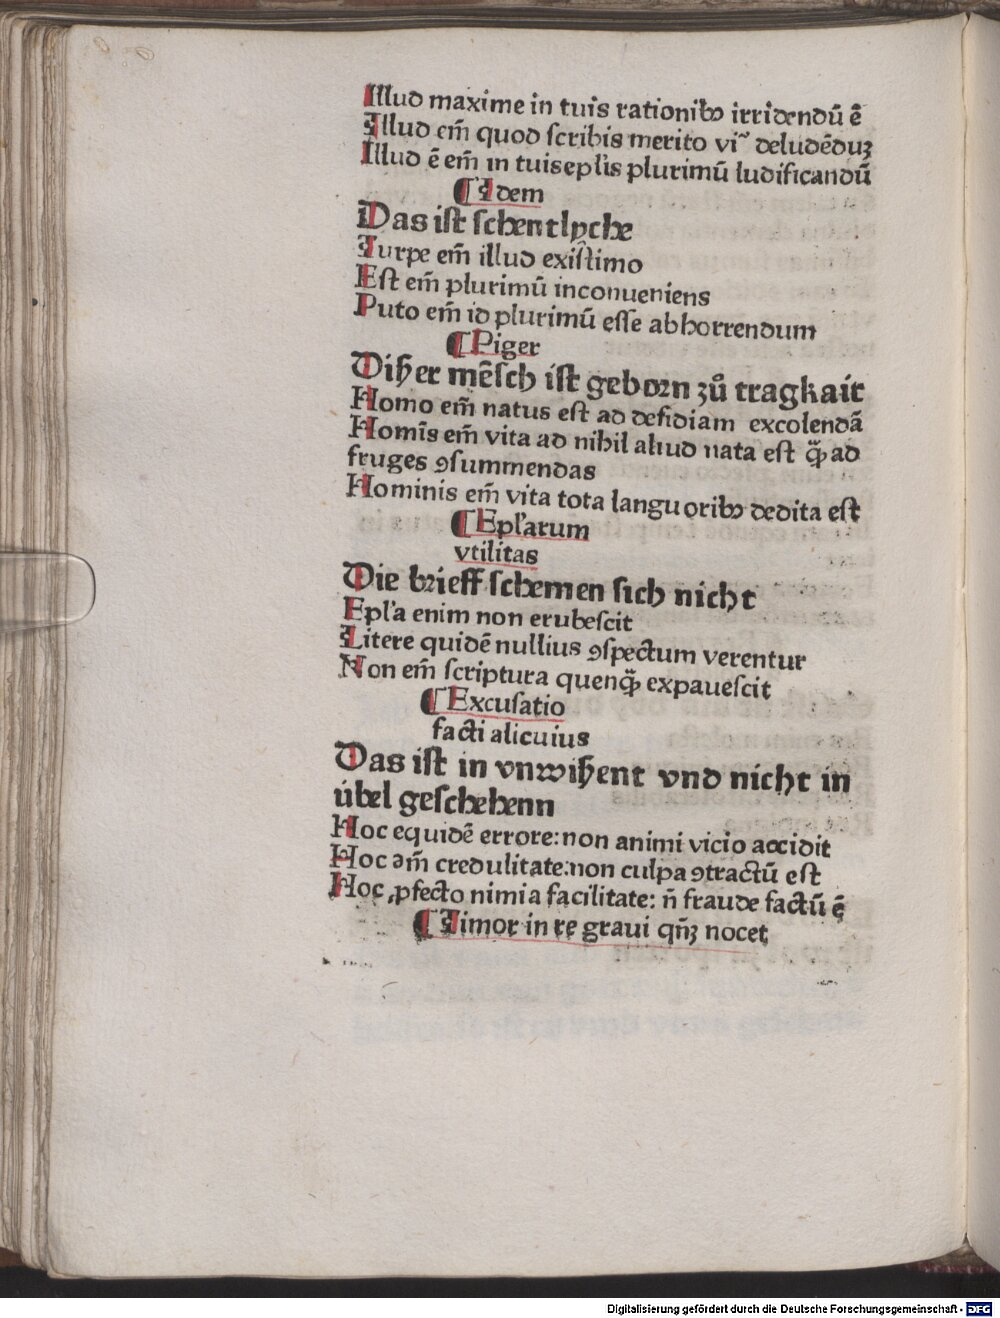 Illud maxime in tuis rationibꝰ irridendū ē
Illud em̄ quod scribis merito vir̃ deludēduꝫ
Illud ē em̄ in tuis epl̃is plurimū ludificandū
¶ Idem
Das ist schentlyche
Turpe em̄ illud existimo
Est em̄ plurimū inconueniens
Puto em̄ id plurimū esse abhorrendum
¶ Piger
Diẞer mēsch ist geborn zů tragkait
Homo em̄ natus est ad desidiam excolendā
Homīs em̄ vita ad nihil aliud nata est q̄ꝫ ad
fruges ꝯsummendas
Hominis em̄ vita tota languoribꝰ dedita est
¶ Epl̃arum
vtilitas
Die brieff schemen sich nicht
Epl̃a enim non erubescit
Litere quidē nullius ꝯspectum verentur
Non em̄ scriptura quenq̄ꝫ expauescit
¶ Excusatio
facti alicuius
Das ist in vnwiẞent vnd nicht in
übel geschehenn
Hoc equidē errore: non animi vicio accidit
Hoc em̄ credulitate: non culpa ꝯtractū est
Hoc ꝓfecto nimia facilitate: n̄ fraude factū ē
¶ Timor in re graui qn̄ꝫ nocet
Digitalisierung gefördert durch die Deutsche Forschungsgemeinschaft - DFG